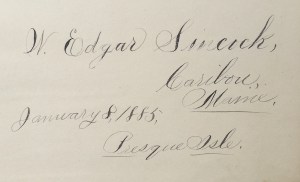 W. Edgar Sincick,
Caribou,
Maine.
January 8, 1885,
Presque Isle.